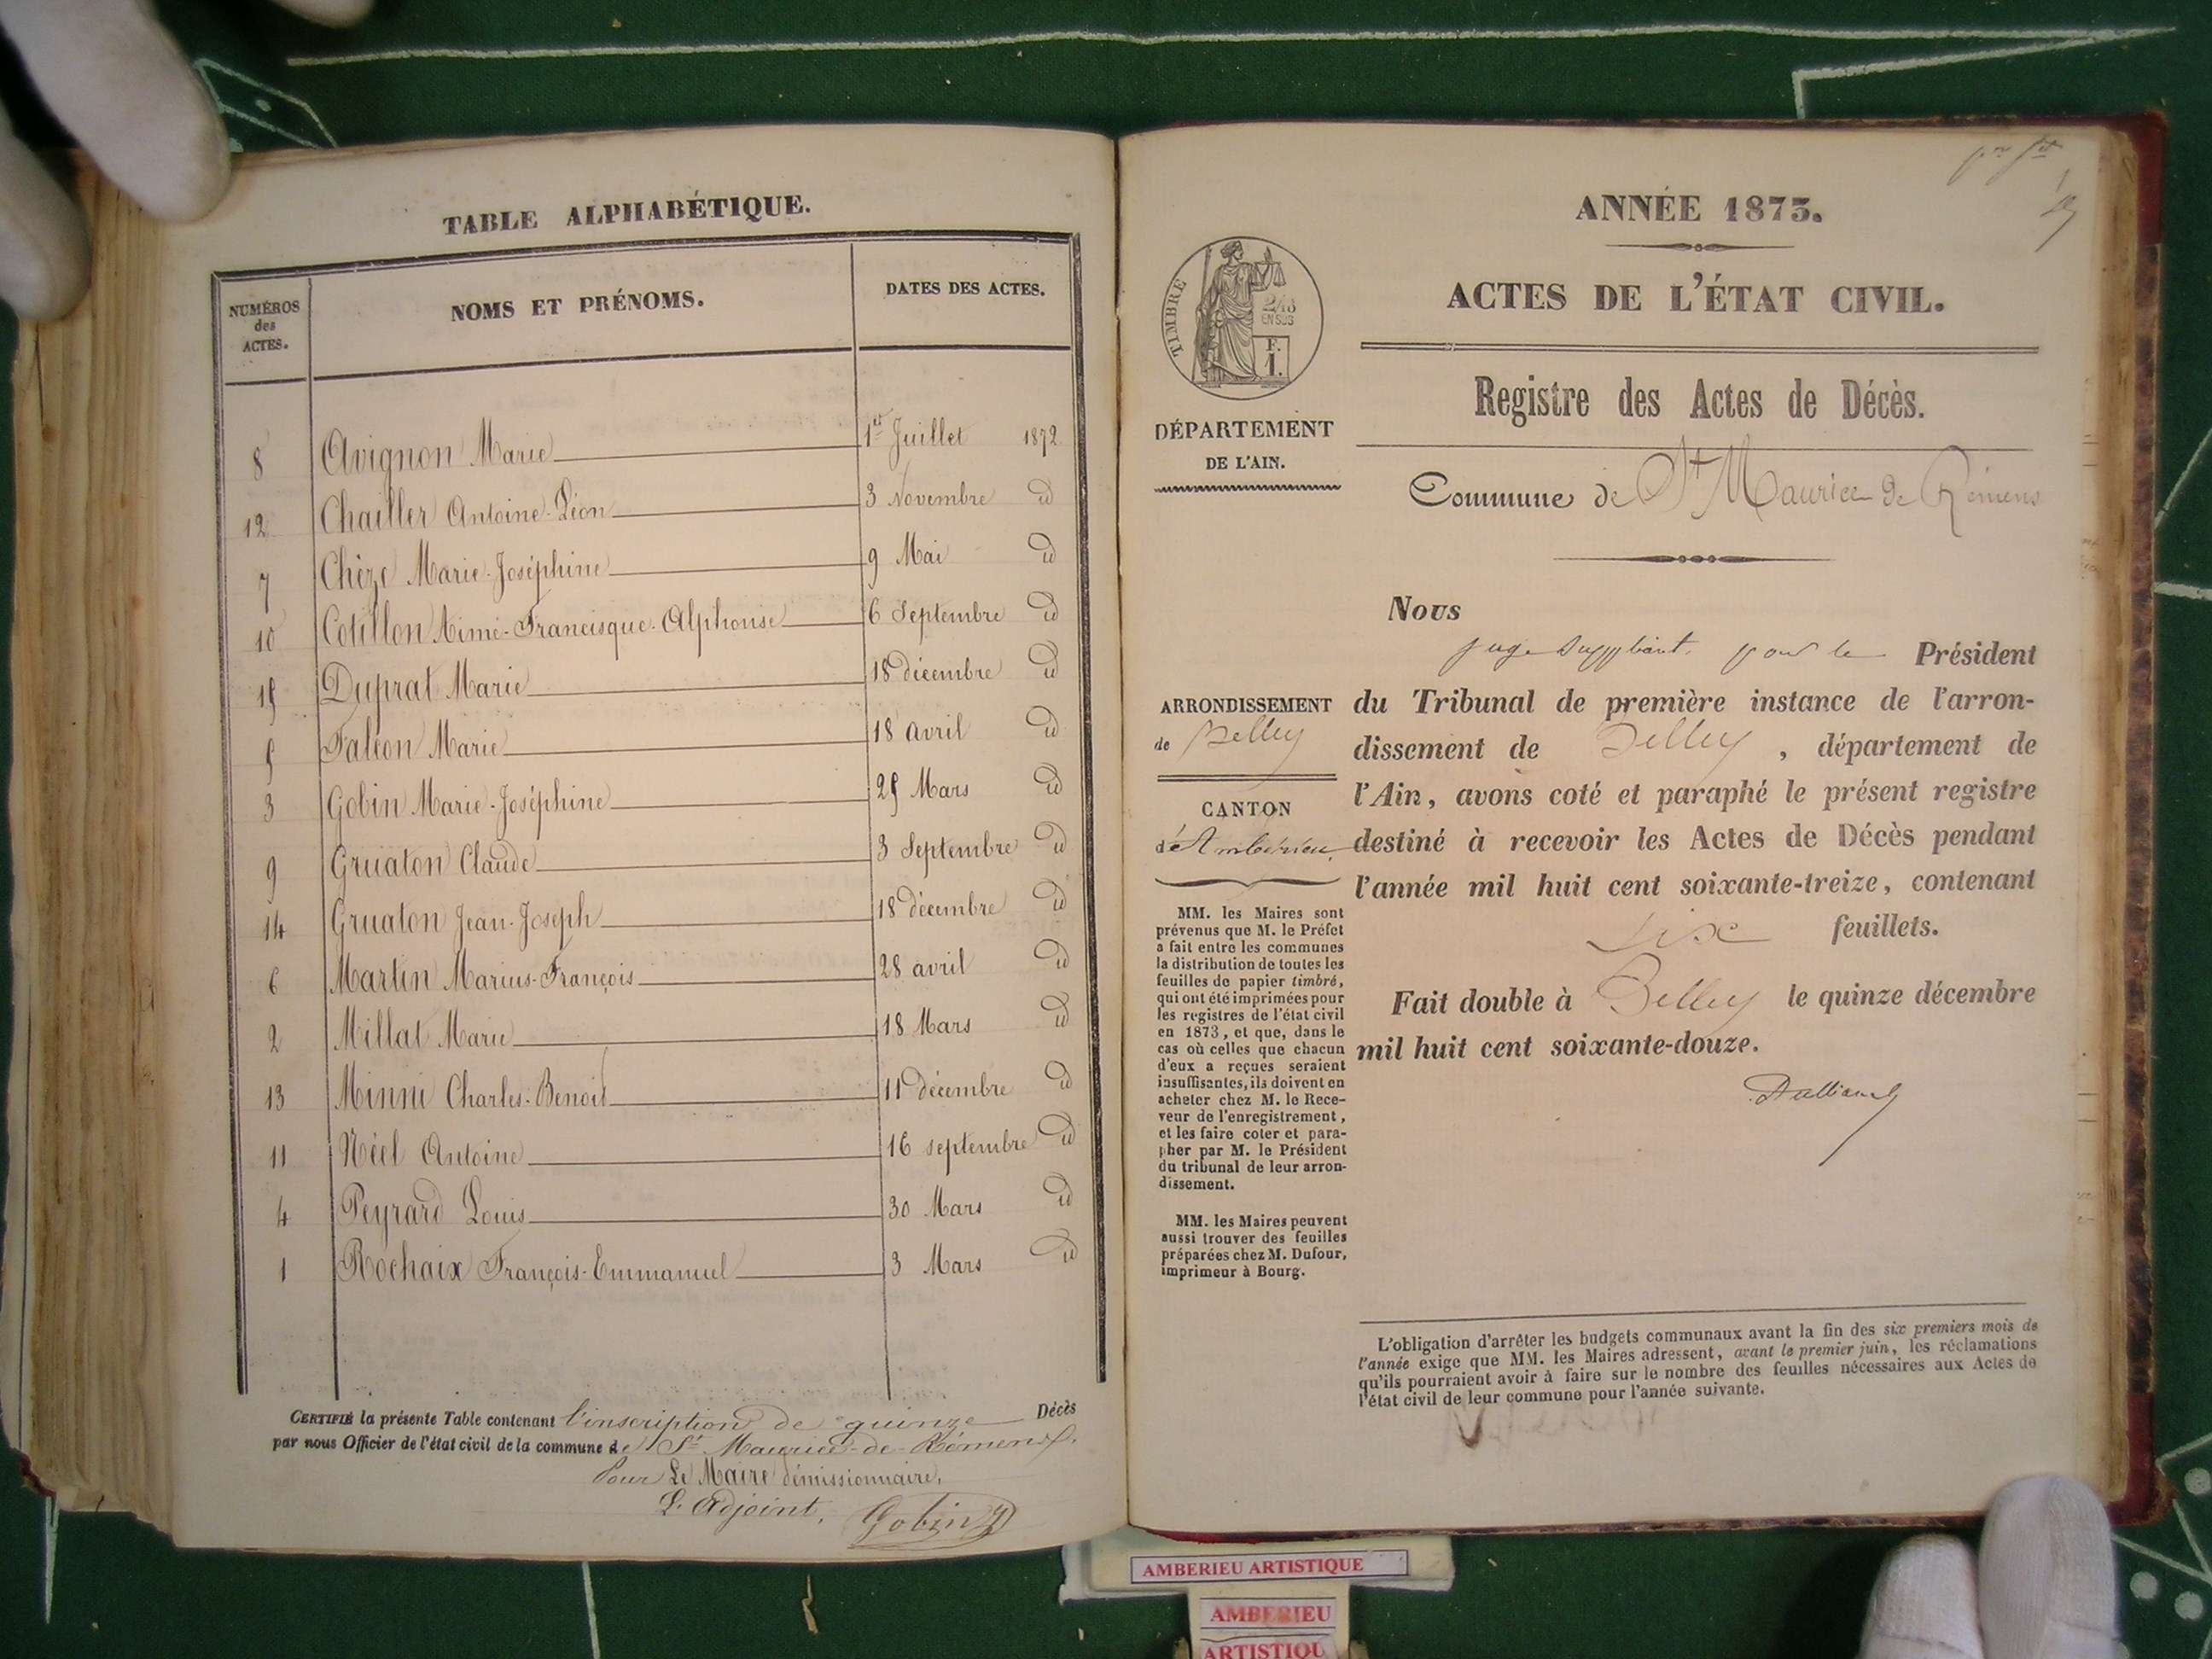 TABLE ALPHABÉTIQUE.
NUMÉROS
des
ACTES.
NOMS ET PRÉNOMS.
DATES DES ACTES.
8 Avignon Marie 1er Juillet 1872
12 Chailler Antoine-Léon 3 Novembre id
7 Chèze Marie-Joséphine 9 Mai id
10 Cotillon Aimé-Francisque-Alphonse 6 Septembre id
15 Duprat Marie 18 décembre id
5 Falcon Marie 18 avril id
3 Gobin Marie-Joséphine 25 Mars id
9 Gruaton Claude 3 Septembre id
14 Gruaton Jean-Joseph 18 décembre id
6 Martin Marius-François 28 avril id
2 Millat Marie 18 Mars id
13 Minni Charles-Benoit 11 décembre id
11 Néel Antoine 16 septembre id
4 Peyrard Louis 30 Mars id
1 Rochaix François-Emmanuel 3 Mars id
CERTIFIÉ la présente Table contenant l'inscription de quinze Décès
par nous Officier de l'état civil de la commune de St Maurice-de-Rémens.
Pour Le Maire démissionnaire,
L'Adjoint, Gobin
ANNÉE 1873.
ACTES DE L'ÉTAT CIVIL.
TIMBRE
2/10
EN SUS
F.
1.
Registre des Actes de Décès.
DÉPARTEMENT
DE L'AIN.
Commune de St Maurice de Rémens
Nous
juge suppléant pour le Président
du Tribunal de première instance de l'arron-
dissement de Belley, département de
l'Ain, avons coté et paraphé le présent registre
destiné à recevoir les Actes de Décès pendant
l'année mil huit cent soixante-treize, contenant
six feuillets.
Fait double à Belley le quinze décembre
mil huit cent soixante-douze.
ARRONDISSEMENT
de Belley
CANTON
d'Ambérieu
MM. les Maires sont
prévenus que M. le Préfet
a fait entre les communes
la distribution de toutes les
feuilles de papier timbré,
qui ont été imprimées pour
les registres de l'état civil
en 1873, et que, dans le
cas où celles que chacun
d'eux a reçues seraient
insuffisantes, ils doivent en
acheter chez M. le Rece-
veur de l'enregistrement,
et les faire coter et para-
pher par M. le Président
du tribunal de leur arron-
dissement.
MM. les Maires peuvent
aussi trouver des feuilles
préparées chez M. Dufour,
imprimeur à Bourg.
L'obligation d'arrêter les budgets communaux avant la fin des six premiers mois de
l'année exige que MM. les Maires adressent, avant le premier juin, les réclamations
qu'ils pourraient avoir à faire sur le nombre des feuilles nécessaires aux Actes de
l'état civil de leur commune pour l'année suivante.
AMBERIEU ARTISTIQUE
AMBERIEU
ARTISTIQU